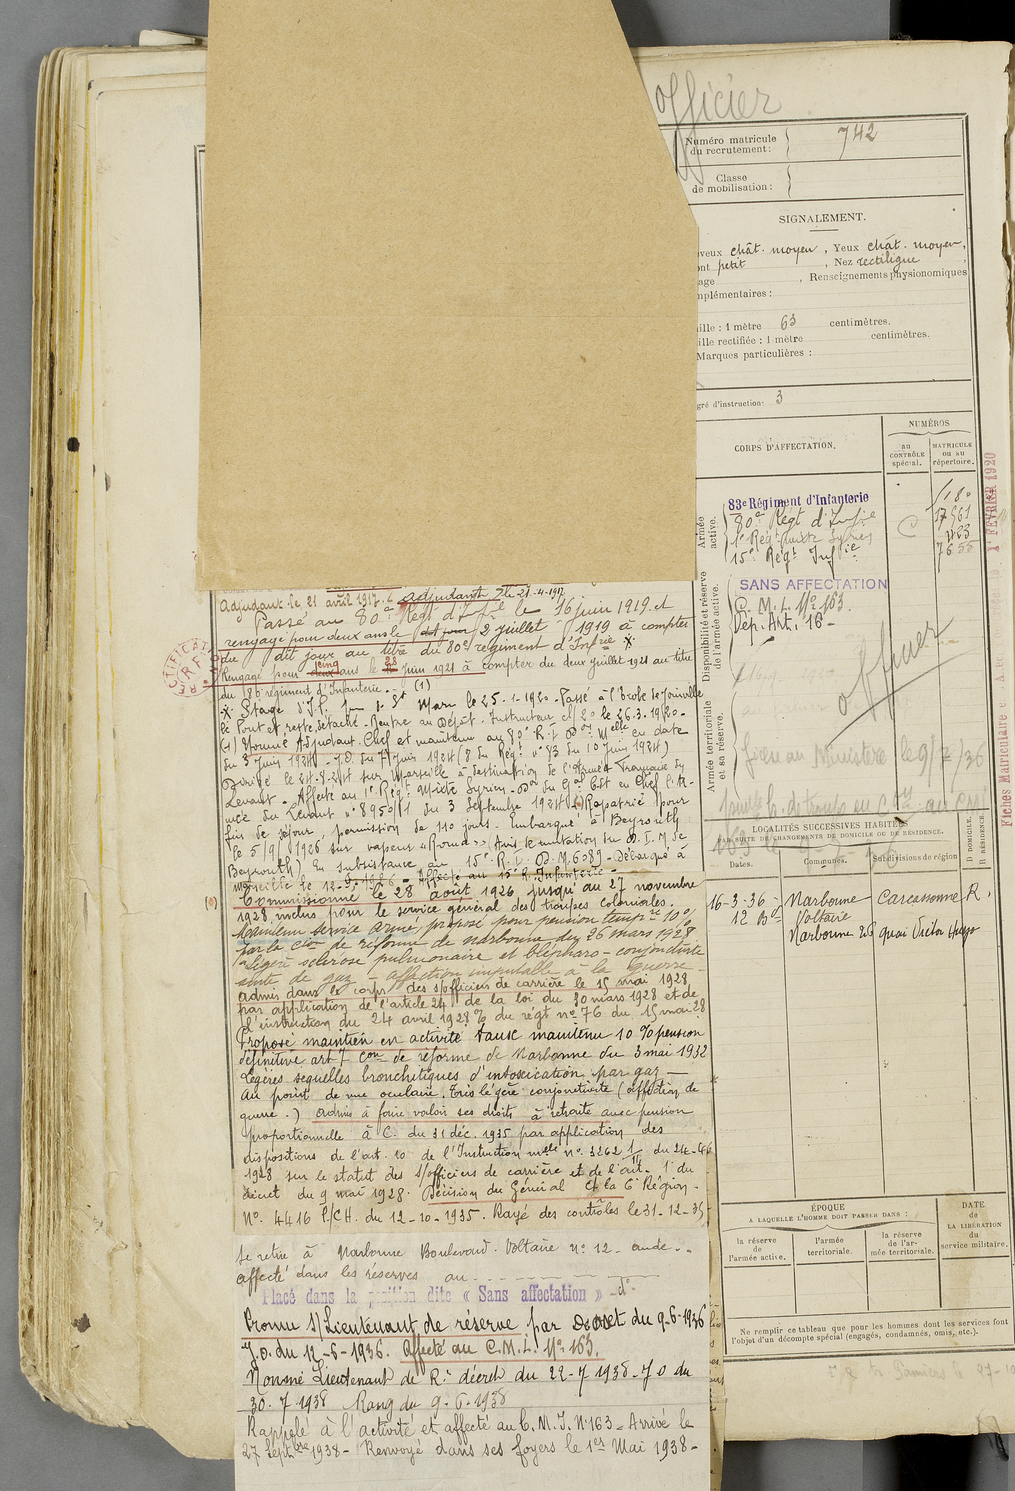 officier
Numéro matricule
du recrutement :
742
Classe
de mobilisation :
SIGNALEMENT.
veux chât. moyen, Yeux chât. moyen,
ont petit, Nez rectiligne
age, Renseignements physionomiques
mplémentaires :
ille : 1 mètre 63 centimètres.
ille rectifiée : 1 mètre centimètres.
Marques particulières :
gré d'instruction : 3
CORPS D'AFFECTATION.
NUMÉROS
au
CONTRÔLE
spécial.
MATRICULE
ou au
répertoire.
Armée
active.
83e Régiment d'Infanterie
80e Régt d'Infie
1e Régt mixte Syrien
15e Régt Infie
C
Disponibilité et réserve
de l'armée active.
SANS AFFECTATION
C. M. I. No 163.
Dép. Art. 16-
officier
Armée territoriale
et sa réserve.
au Ministère le 9/2/36
Fiches Matriculaires
1er FÉVRIER 1920
LOCALITÉS SUCCESSIVES HABITÉES
PAR SUITE DE CHANGEMENTS DE DOMICILE OU DE RÉSIDENCE.
Dates.
Communes.
Subdivisions de région
D DOMICILE.
R RÉSIDENCE.
16-3-36 - Narbonne Carcassonne R.
12 Bd Voltaire
Narbonne 26 quai Victor Hugo
ÉPOQUE
A LAQUELLE L'HOMME DOIT PASSER DANS :
la réserve
de
l'armée active.
l'armée
territoriale.
la réserve
de l'ar-
mée territoriale.
DATE
de
LA LIBÉRATION
du
service militaire.
Ne remplir ce tableau que pour les hommes dont les services font
l'objet d'un décompte spécial (engagés, condamnés, omis, etc.).
Adjudant le 21 avril 1917. Adjudant le 21-4-1917
Passé au 80e Régt d'Infie le 16 juin 1919 et
rengagé pour deux ans le 2 juillet 1919 à compter
du dit jour au titre du 80e régiment d'Infrie X
Rengagé pour cinq ans le 28 juin 1921 à compter du deux juillet 1921 au titre
du 80e régiment d'Infanterie. - (1)
X Stage d'I.P. St Maur le 25-1-1920 - Passé à l'École de Joinville
le Pont et reste détaché - Rentre au Dépôt. Instructeur le 26-3-1920 -
(1) Nommé Adjudant Chef et maintenu au 80e R.I. Don Melle en date
du 3 Juin 1924 - J.O. du 7 Juin 1924 (8 du Régt no 83 du 10 Juin 1924)
Dirigé le 21-8-24 sur Marseille à destination de l'Armée Française du
Levant - Affecté au 1e Régt Mixte Syrien - Don du Gal Cdt en Chef l'Ar-
mée du Levant no 8950/1 du 3 Septembre 1924 Rapatrié pour
fin de séjour, permission de 110 jours. Embarqué à Beyrouth
le 5/9/1926 sur vapeur « Roma » (Avis de mutation du D.I.M de
Beyrouth) En subsistance au 15e R.I. D.M. 6089 - Débarqué à
Marseille le 12-9-1926 - Affecté au 15e R. Infanterie -
Commissionné le 28 août 1926 jusqu'au 27 novembre
1928 inclus pour le service général des troupes coloniales.
Maintenu service armé, proposé pour pension tempre 10 %
par la Cion de réforme de Narbonne du 26 mars 1928
"Légère sclérose pulmonaire et blépharo-conjonctivite
suite de gaz - affection imputable à la guerre -
Admis dans le corps des s/officiers de carrière le 15 mai 1928
par application de l'article 24 de la loi du 30 mars 1928 et de
l'instruction du 24 avril 1928 du régt no 76 du 15 mai 28
Proposé maintien en activité taux maintenu 10 % pension
définitive art 7 Con de réforme de Narbonne du 3 mai 1932
Légères séquelles bronchitiques d'intoxication par gaz -
Au point de vue oculaire. Très légère conjonctivite (affection de
guerre.) Admis à faire valoir ses droits à retraite avec pension
proportionnelle à C. du 31 déc. 1935 par application des
dispositions de l'art. 10 de l'Instruction melle no 3262 1/11 du 24-4
1928 sur le statut des s/officiers de carrière et de l'art. 1 du
décret du 9 mai 1928. Décision du Général Ct la 16e Région -
No. 4416 P/CH. du 12-10-1935. Rayé des contrôles le 31-12-35
se retire à Narbonne Boulevard Voltaire no 12 - aude -
affecté dans les réserves au
Placé dans la position dite « Sans affectation » - d° -
Promu S/Lieutenant de réserve par Décret du 9-6-1936
J.O. du 12-6-1936. Affecté au C.M.I. No 163.
Nommé Lieutenant de R. décret du 22-7-1938 - J O du
30-7-1938 Rang du 9-6-1938
Rappelé à l'activité et affecté au C.M.I. No 163 - Arrivé le
27 Septbre 1938 - Renvoyé dans ses foyers le 1er Mai 1938 -